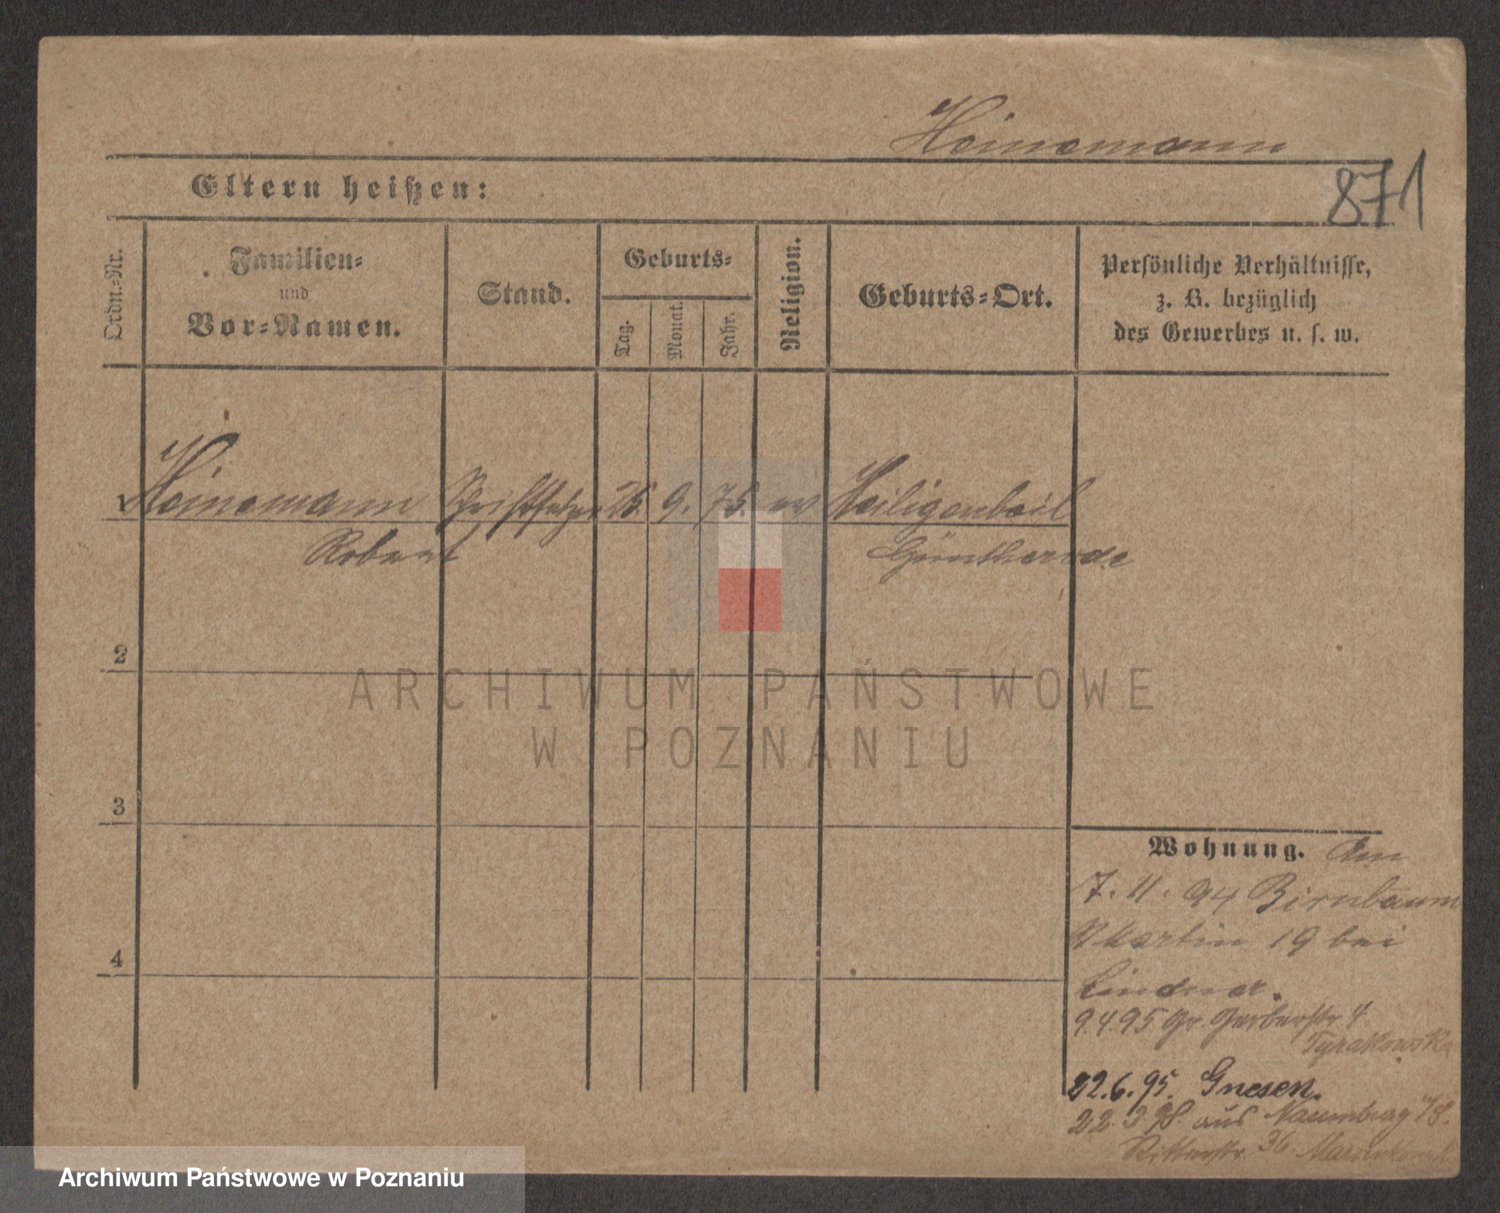 Heinemann
871
Eltern heißen:
Ordn.-Nr.
Familien-
und
Vor-Namen.
Stand.
Geburts-
Tag.
Monat.
Jahr.
Religion.
Geburts-Ort.
Persönliche Verhältnisse,
z. B. bezüglich
des Gewerbes u. s. w.
1 Heinemann Schriftsetzer 26. 9. 75. ev Heiligenbeil
Robert
2
3
4
Wohnung. Am
7. 11. 94 Birnbaum
Martin 19 bei
Lindner.
9.4.95 Gr. Gerberstr 4
Tyrakowski
22.6.95. Gnesen.
22.3.98. aus Naumburg
Ritterstr. 36
ARCHIWUM PAŃSTWOWE
W POZNANIU
Archiwum Państwowe w Poznaniu